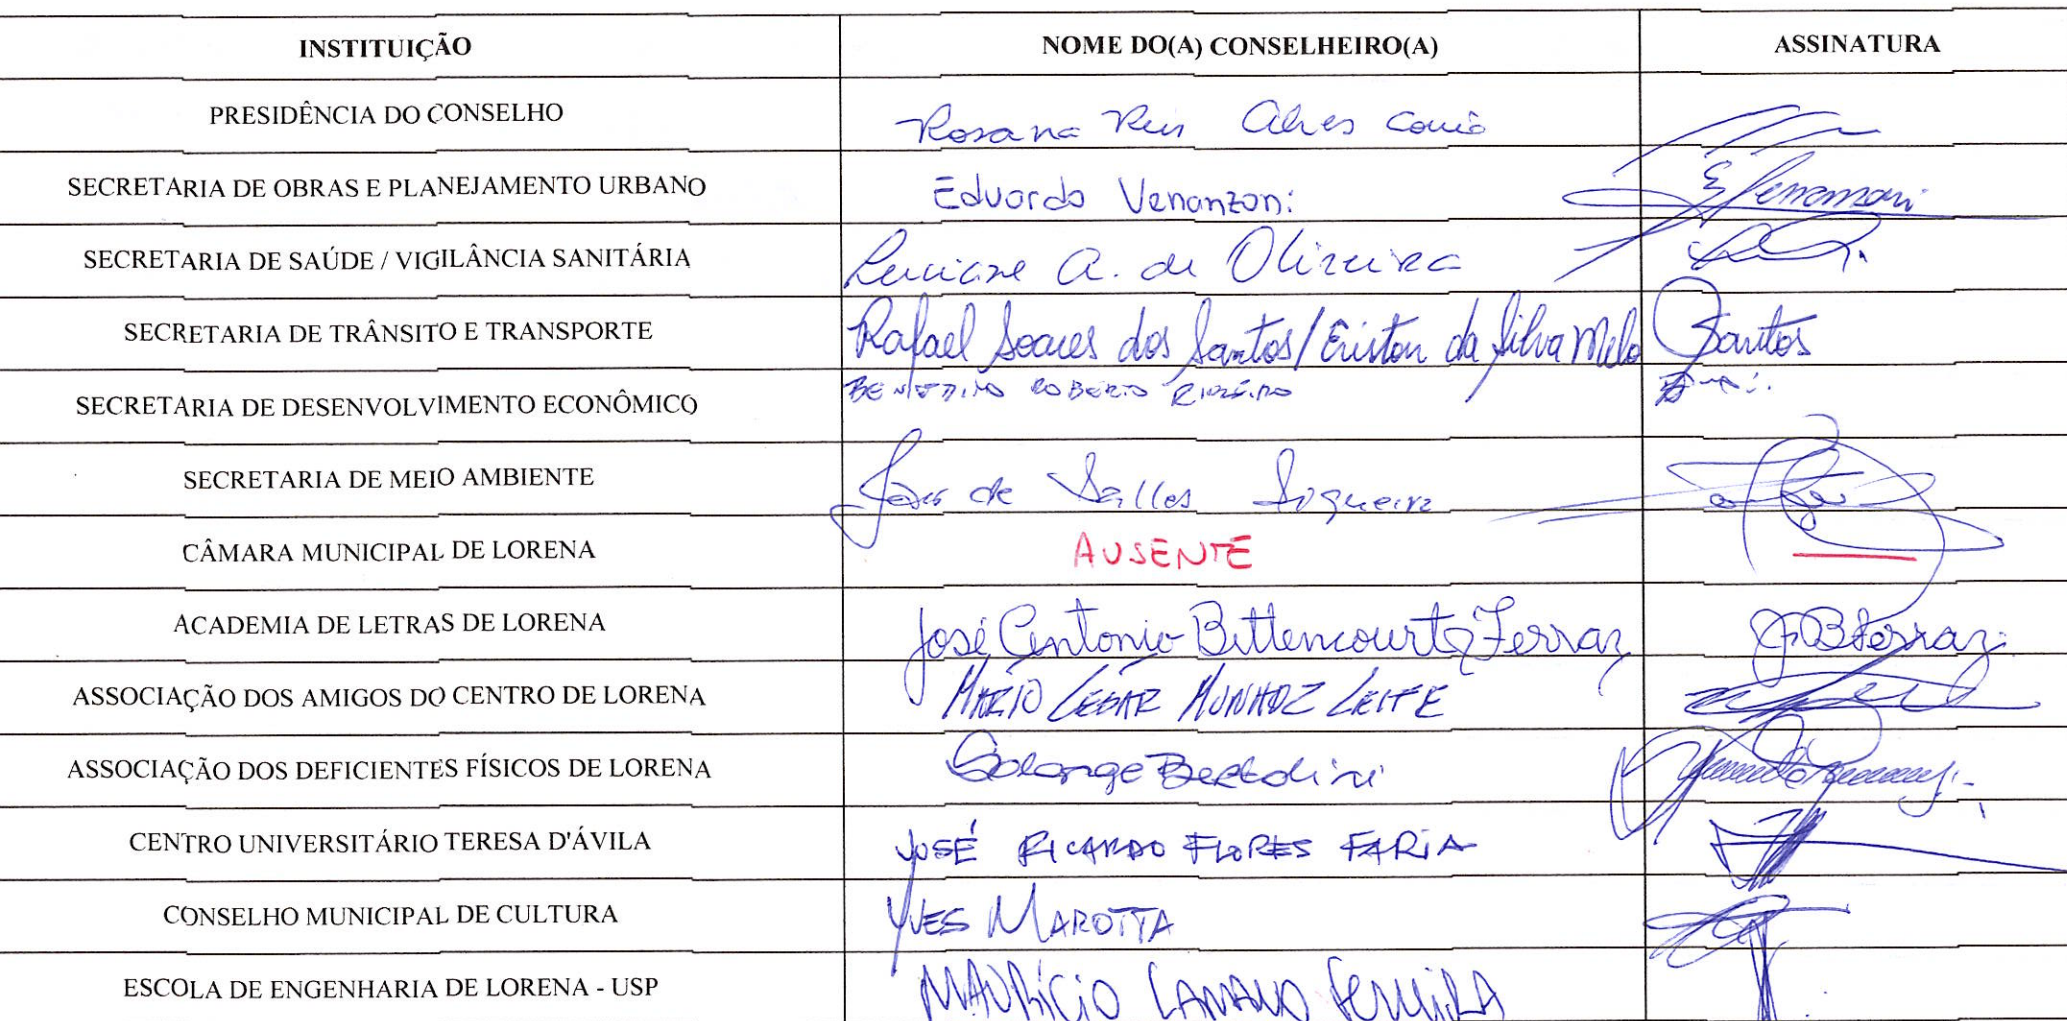 INSTITUIÇÃO NOME DO(A) CONSELHEIRO(A) ASSINATURA
PRESIDÊNCIA DO CONSELHO Rosana Reis Alves
SECRETARIA DE OBRAS E PLANEJAMENTO URBANO Eduardo Venanzoni
SECRETARIA DE SAÚDE / VIGILÂNCIA SANITÁRIA Luciane A. de Oliveira
SECRETARIA DE TRÂNSITO E TRANSPORTE Rafael Soares dos Santos/Eriston da Silva Melo Santos
SECRETARIA DE DESENVOLVIMENTO ECONÔMICO ROBERTO
SECRETARIA DE MEIO AMBIENTE de Salles Siqueira
CÂMARA MUNICIPAL DE LORENA AUSENTE
ACADEMIA DE LETRAS DE LORENA José Antonio Bittencourt Ferraz JABFerraz
ASSOCIAÇÃO DOS AMIGOS DO CENTRO DE LORENA MARIO CESAR MUNHOZ LEITE
ASSOCIAÇÃO DOS DEFICIENTES FÍSICOS DE LORENA Solange Bertolini
CENTRO UNIVERSITÁRIO TERESA D'ÁVILA JOSÉ RICARDO FLORES FARIA
CONSELHO MUNICIPAL DE CULTURA YVES MAROTTA
ESCOLA DE ENGENHARIA DE LORENA - USP MAURÍCIO LAMANO FERREIRA